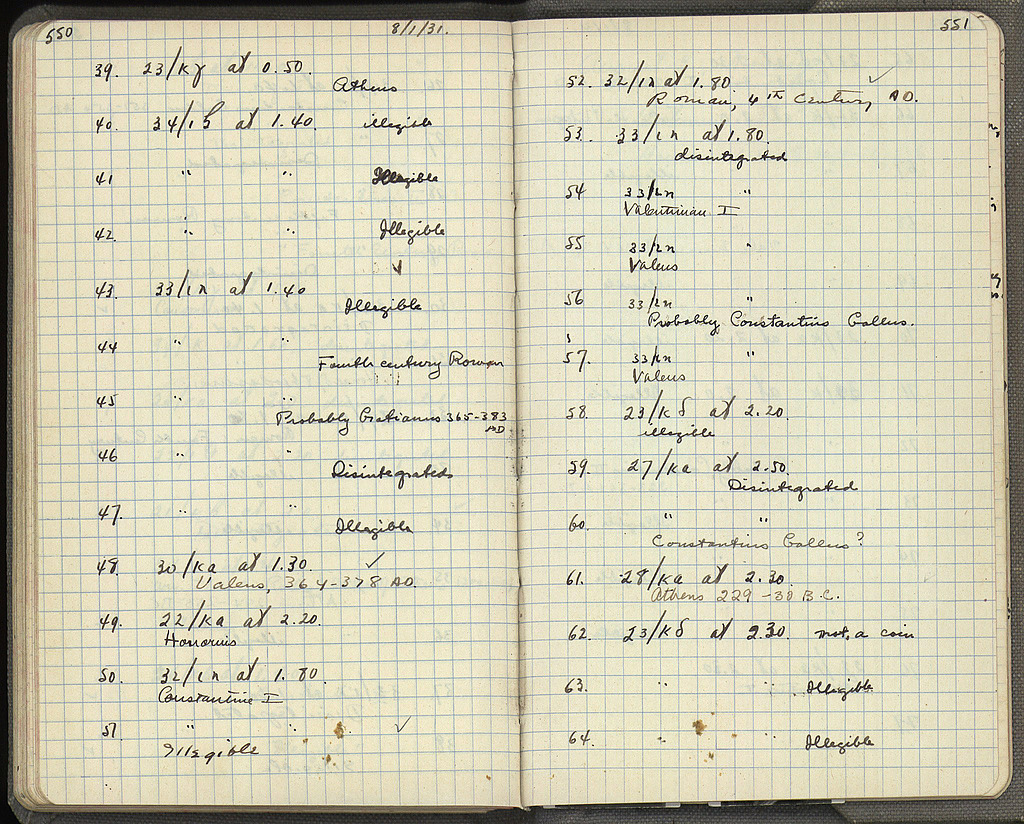 550
8/1/31.
39. 23/Κγ at 0.50.
Athens
40. 34/ at 1.40. illegible
41 " " Illegible
42. " " Illegible
43. 33/ΙΠ at 1.40
Illegible
44 " "
Fourth century Roman
45 " "
Probably Gratianus 365-383
AD
46 " "
Disintegrated
47. " "
Illegible
48. 30/Κα at 1.30. ✓
Valens, 364-378 AD.
49. 22/Κα at 2.20.
Honorius
50. 32/ΙΠ at 1.80
Constantine I
51 " " ✓
Illegible
551
52. 32/ΙΠ at 1.80 ✓
Roman, 4th Century AD.
53. 33/ΙΠ at 1.80.
disintegrated
54 33/ΙΠ "
Valentinian I
55 33/ΙΠ "
Valens
56 33/ΙΠ "
Probably Constantius Gallus.
57. 33/ΙΠ "
Valens
58. 23/Κδ at 2.20.
illegible
59. 27/Κα at 2.50.
Disintegrated
60. " "
Constantius Gallus?
61. 28/Κα at 2.30.
Athens 229-30 B.C.
62. 23/Κδ at 2.30. not a coin
63. " " Illegible
64. " " Illegible